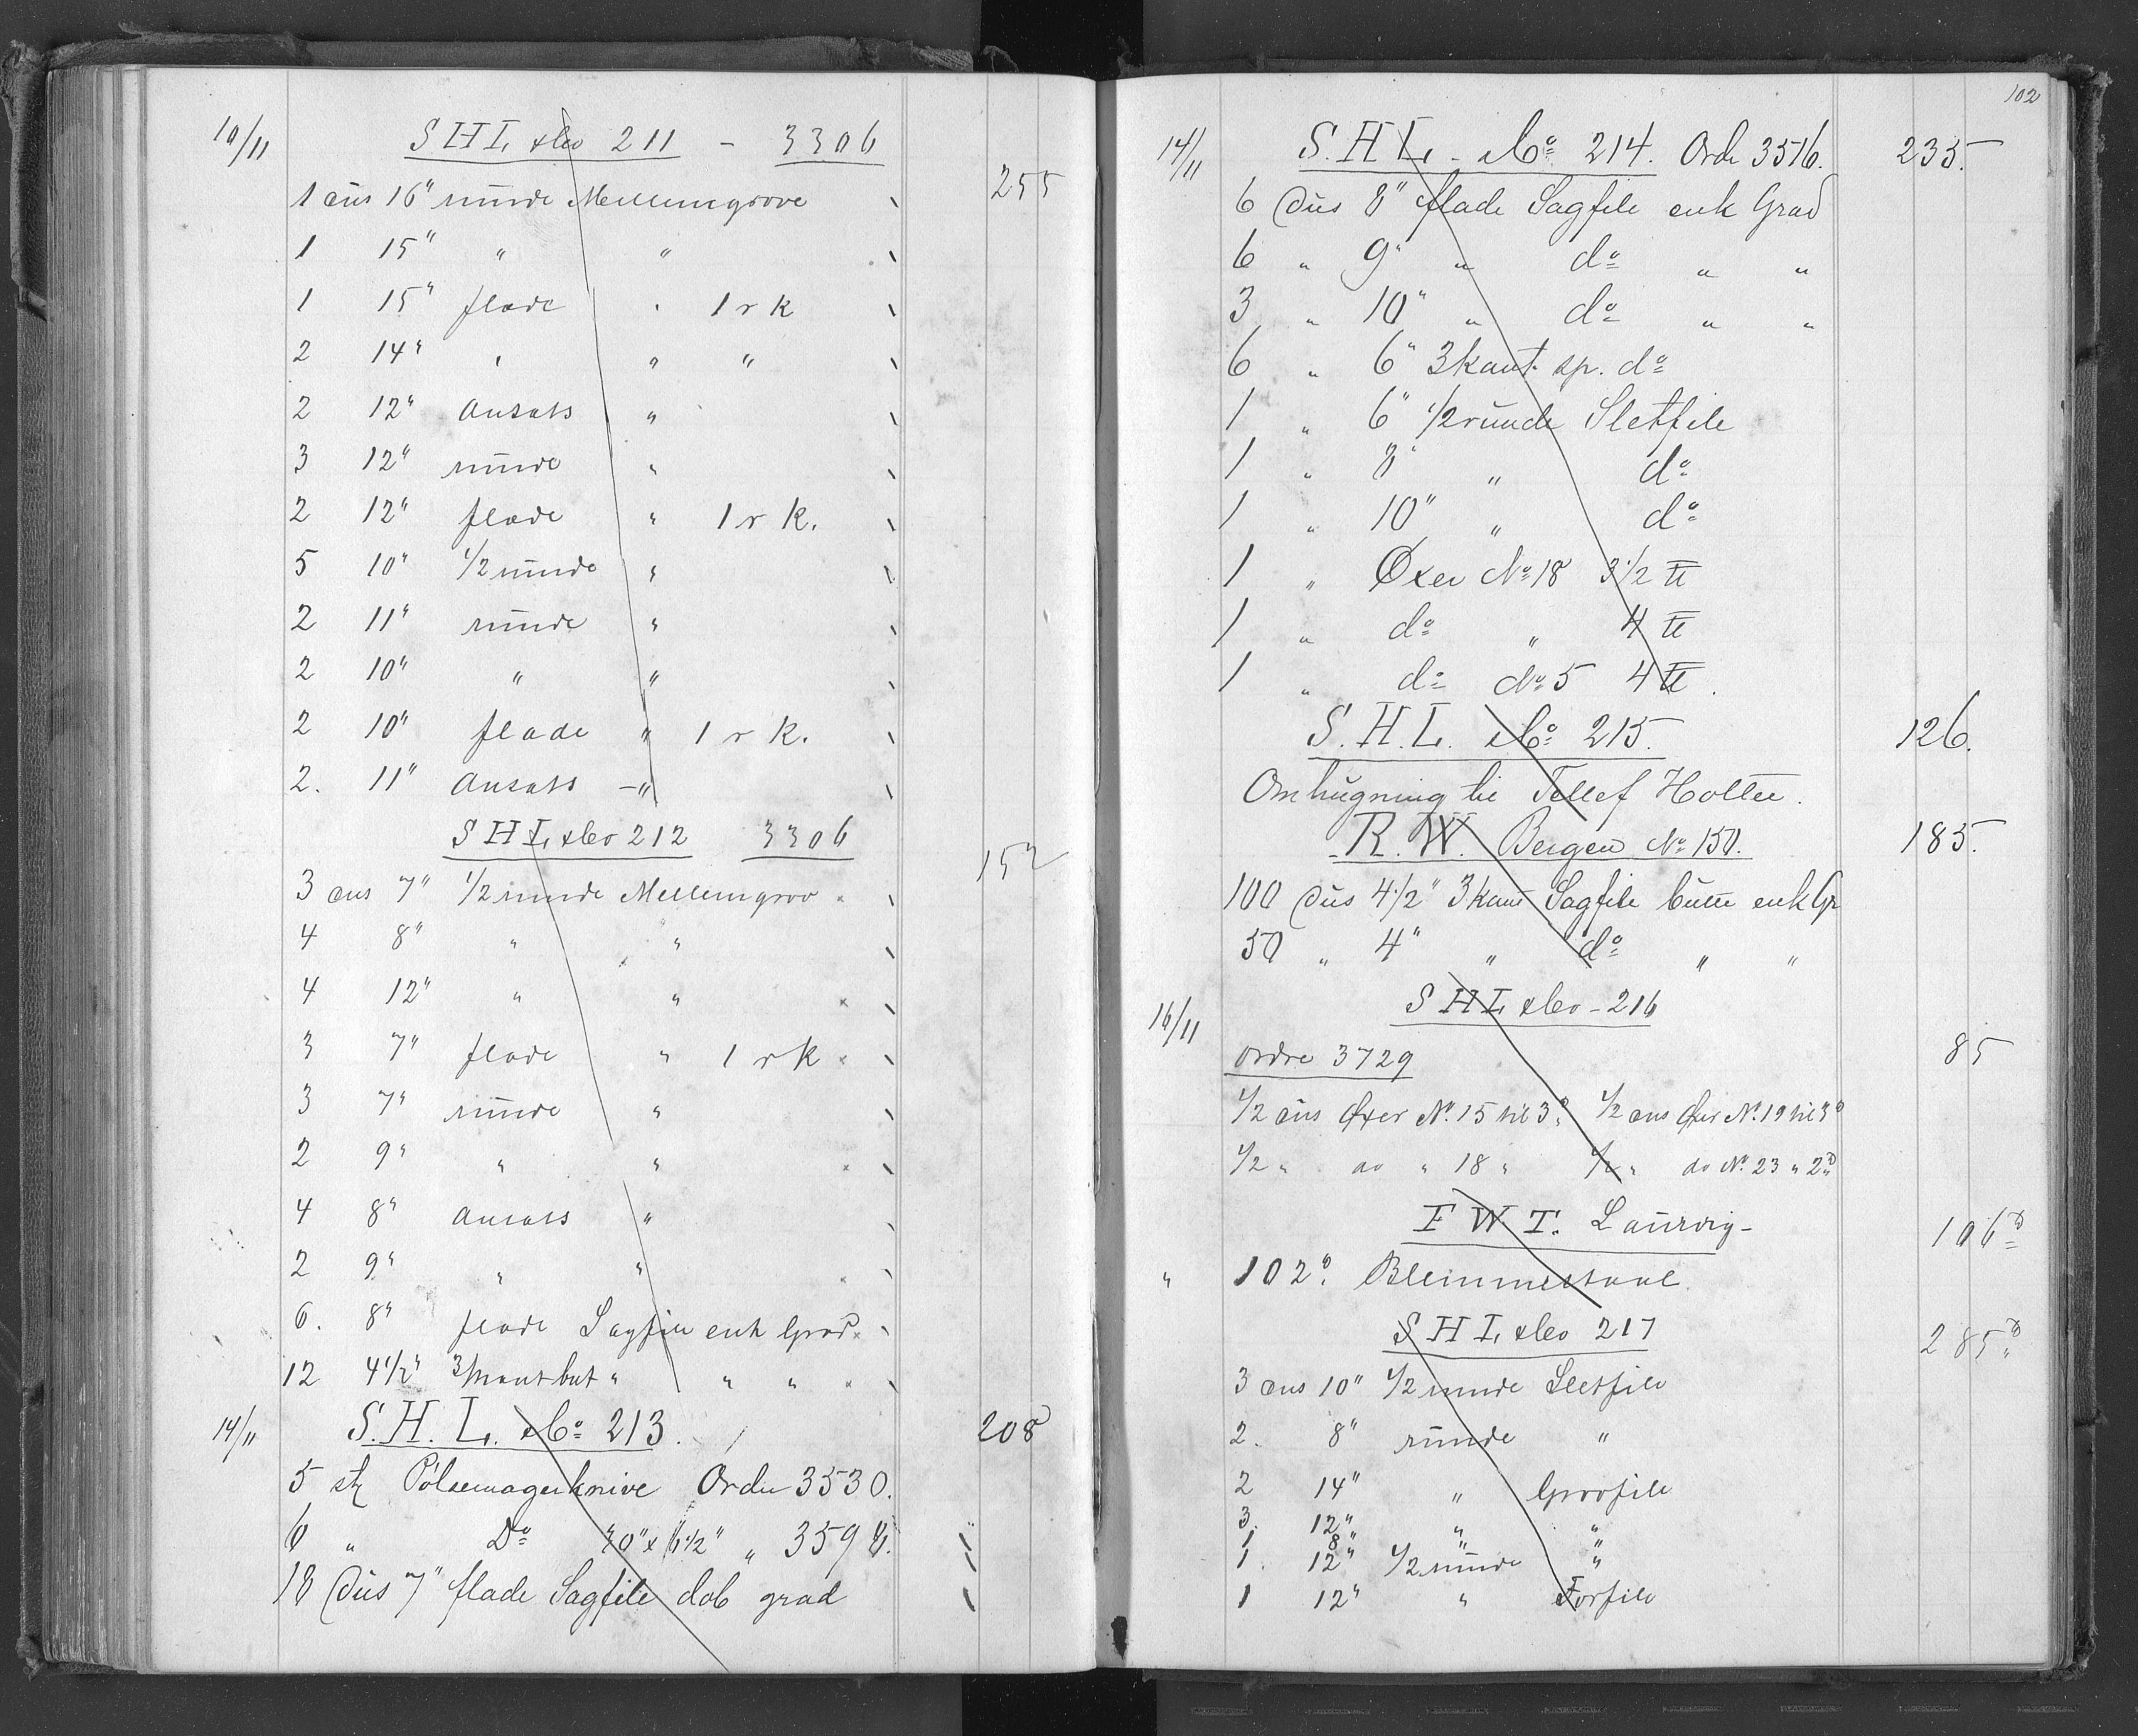 10/11 SHL & Co 211 - 3306
1 dus 16" runde Mellemgrove 255
1 15" " "
1 15" flade " 1 r k
2 14" " " "
2 12" Ansats "
3 12" runde "
2 12" flade " 1 r k.
5 10" 1/2 runde "
2 11" runde "
2 10" " "
2 10" flade " 1 r k.
2. 11" Ansats - "
SHL & Co 212 3306
3 dus 7" 1/2 runde Mellemgrov 152
4 8" " "
4 12" " "
3 7" flade " 1 r k
3 7" runde "
2 9" " "
4 8" Ansats "
2 9" " "
6. 8" flade Sagfile enk Grad.
12 4 1/2" 3kant but " " "
14/11 S.H.L. & Co 213. 208
5 st Pölsemagerknive Ordre 3530.
6 " Do 10" x 6 1/2" "
18 Dus 7" flade Sagfile dob grad
102
14/11 S.H.L. & Co 214. Ordr 3516. 235.
6 Dus 8" flade Sagfile enk Grad
6 " 9" " do " "
3 " 10" " do " "
6 " 6" 3kant sp. do
1 " 6" 1/2 runde Sletfile
1 " 8" " do
1 " 10" " do
1 " Øxer No 18 3 1/2 ℔
1 " do " 4 ℔
1 " do No 5 4 ℔.
S.H.L. & Co 215. 126.
Omhugning til Tellef Holte.
R.W. Bergen No 150. 185.
100 Dus 4 1/2" 3kant Sagfile butte enk Gr
50 " 4" " do " "
SHL & Co - 216
16/11
ordre 3729 85
1/2 dus Øxer No. 15 til 3 ℔ 1/2 dus Øxer No. 19 til 3 ℔
1/2 " do " 18 " 1/2 " do No. 23 " 2 ℔
F W T. Laurvig - 106 ℔
" 102 ℔. Blemmestaal.
SHL & Co 217 285 ℔
3 dus 10" 1/2 runde Sletfile
2. 8" runde "
2 14" " Grovfile
3. 12" " "
1 8" " "
1. 12" 1/2 runde "
1 12" " Forfile